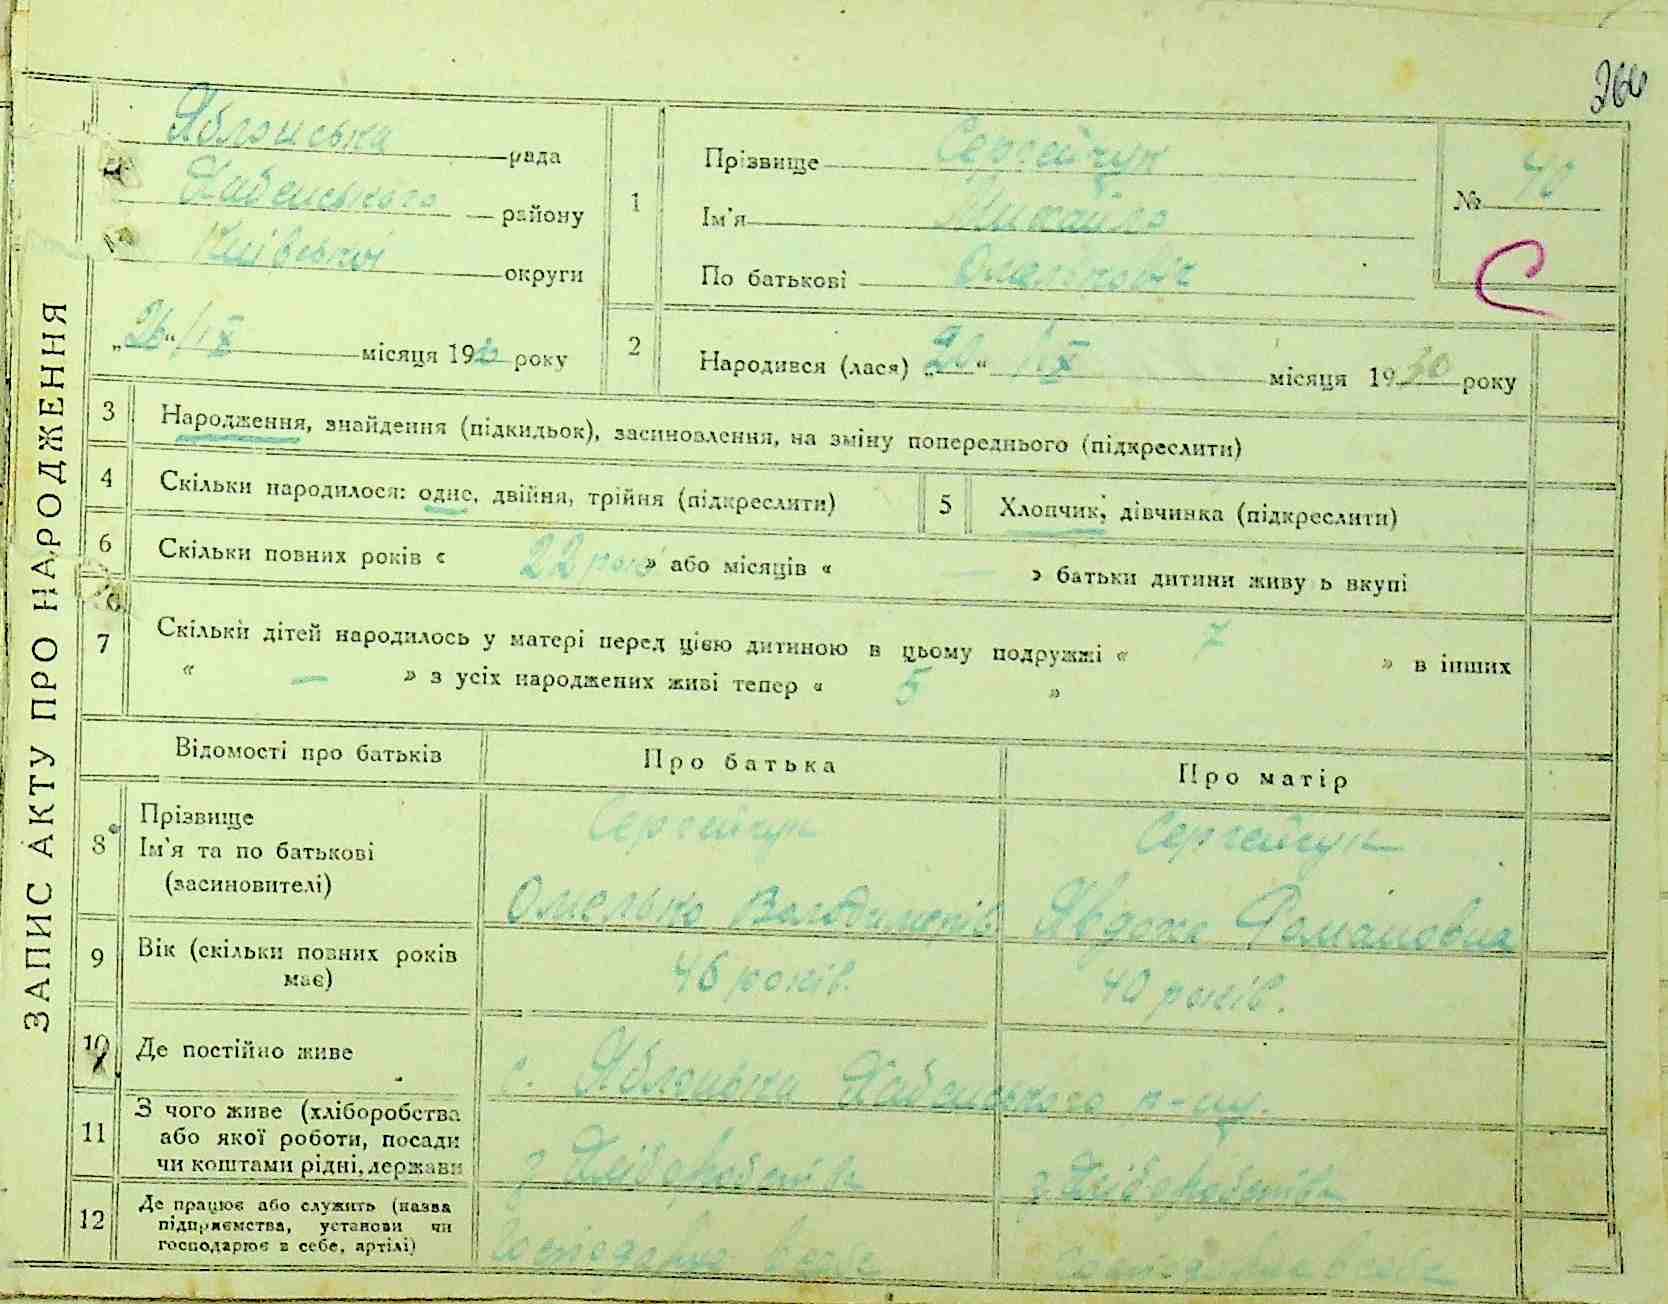 266
Яблонська рада
Кабенського району
Київської округи
„26“/IX місяця 1930 року
ЗАПИС АКТУ ПРО НАРОДЖЕННЯ
1
Прізвище Сергейчук
Ім'я Михайло
По батькові Омелькович
№ 40
С
2
Народився (лася) „20“ IX місяця 1930 року
3
Народження, знайдення (підкидьок), засиновлення, на зміну попереднього (підкреслити)
4
Скільки народилося: одне, двійня, трійня (підкреслити)
5
Хлопчик, дівчинка (підкреслити)
6
Скільки повних років « 22 рок » або місяців « — » батьки дитини живу ь вкупі
7
Скільки дітей народилось у матері перед цією дитиною в цьому подружжі « 7 » в інших
« — » з усіх народжених живі тепер « 5 »
Відомості про батьків
Про батька
Про матір
8
Прізвище
Ім'я та по батькові
(засиновителі)
Сергейчук
Омелько Володимирів
Сергейчук
Явдоха Романовна
9
Вік (скільки повних років
має)
46 років.
40 років.
10
Де постійно живе
с. Яблонька Кабенського р-ну.
11
З чого живе (хліборобства
або якої роботи, посади
чи коштами рідні, держави
з Хліборобства
з Хліборобства
12
Де працює або служить (назва
підприємства, установи чи
господарює в себе, артілі)
Господарює в себе
Господарює в себе